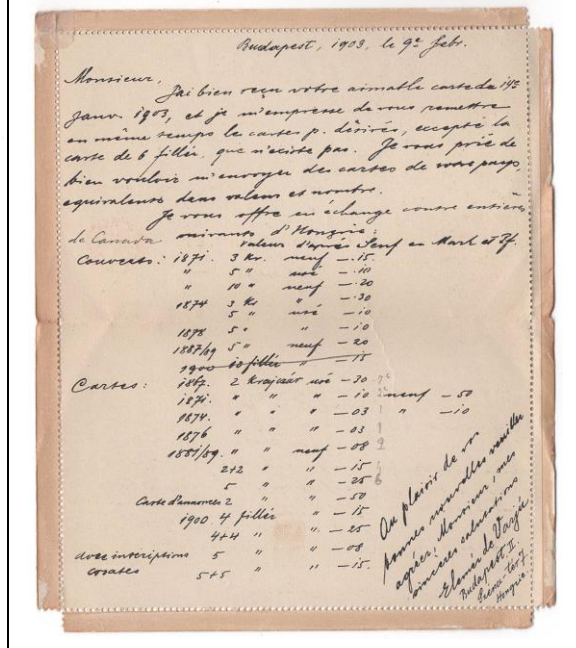 Budapest, 1903, le 9e febr.
Monsieur,
J'ai bien reçu votre aimable carte du 14e
janv. 1903, et je m'empresse de vous remettre
en même temps le cartes p. désirés, excepté la
carte de 6 fillér, que n'existe pas. Je vous prie de
bien vouloir m'envoyer des cartes de votre pays
equivalente dans valeur et nombre.
Je vous offre en échange contre entières
de Canada suivants d'Hongrie:
valeur d'après Senf en Mark et Pf.
Couverts: 1871. 3 Kr. neuf —.15.
" 5 " usé —.10
" 10 " neuf —.20
1874 3 Kr " —.30
5 " usé —.10
1878 5 " " —.10
1887/89 5 " neuf —.20
1900 10 fillér " —.15
Cartes: 1867. 2 Krajczár usé —.30
1871. " " " —.10 neuf —.50
1874. " " " —.03 1 " —.10
1876 " " " —.03 1
1881/89. " " neuf —.08 2
2+2 " " —.15
5 " " —.25 6
Carte d'annonces 2 " " —.50
1900. 4 fillér " —.15
4+4 " " —.25
avec inscriptions 5 " " —.08
croates 5+5 " " —.15.
Au plaisir de vos
bonnes nouvelles veuillez
agréer, Monsieur, mes
sincères salutations
Elemér de Varjú
Budapest II.
tér 7
Hongrie.